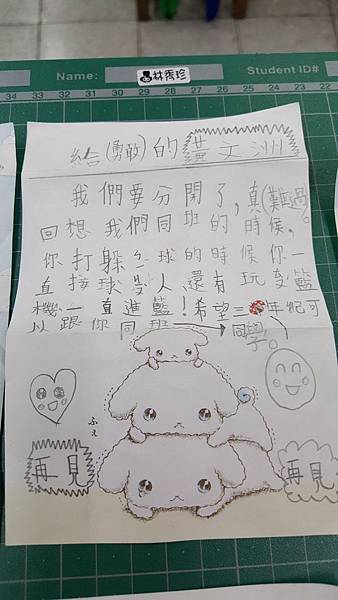 Name: 林秀珍 Student ID#
34 33 32 31 30 29 28 27 26 25 24 23 22 21 20 19 18 17 16 15
給(勇敢)的黃文洲
我們要分開了,真(難過)。
回想我們同班的時候,
你打躲ㄅ球的時候你一
直接球ㄕㄚ人還有玩投籃
機一直進籃!希望三年紀可
以跟你同班
同學。
ふぇ
再見
再見